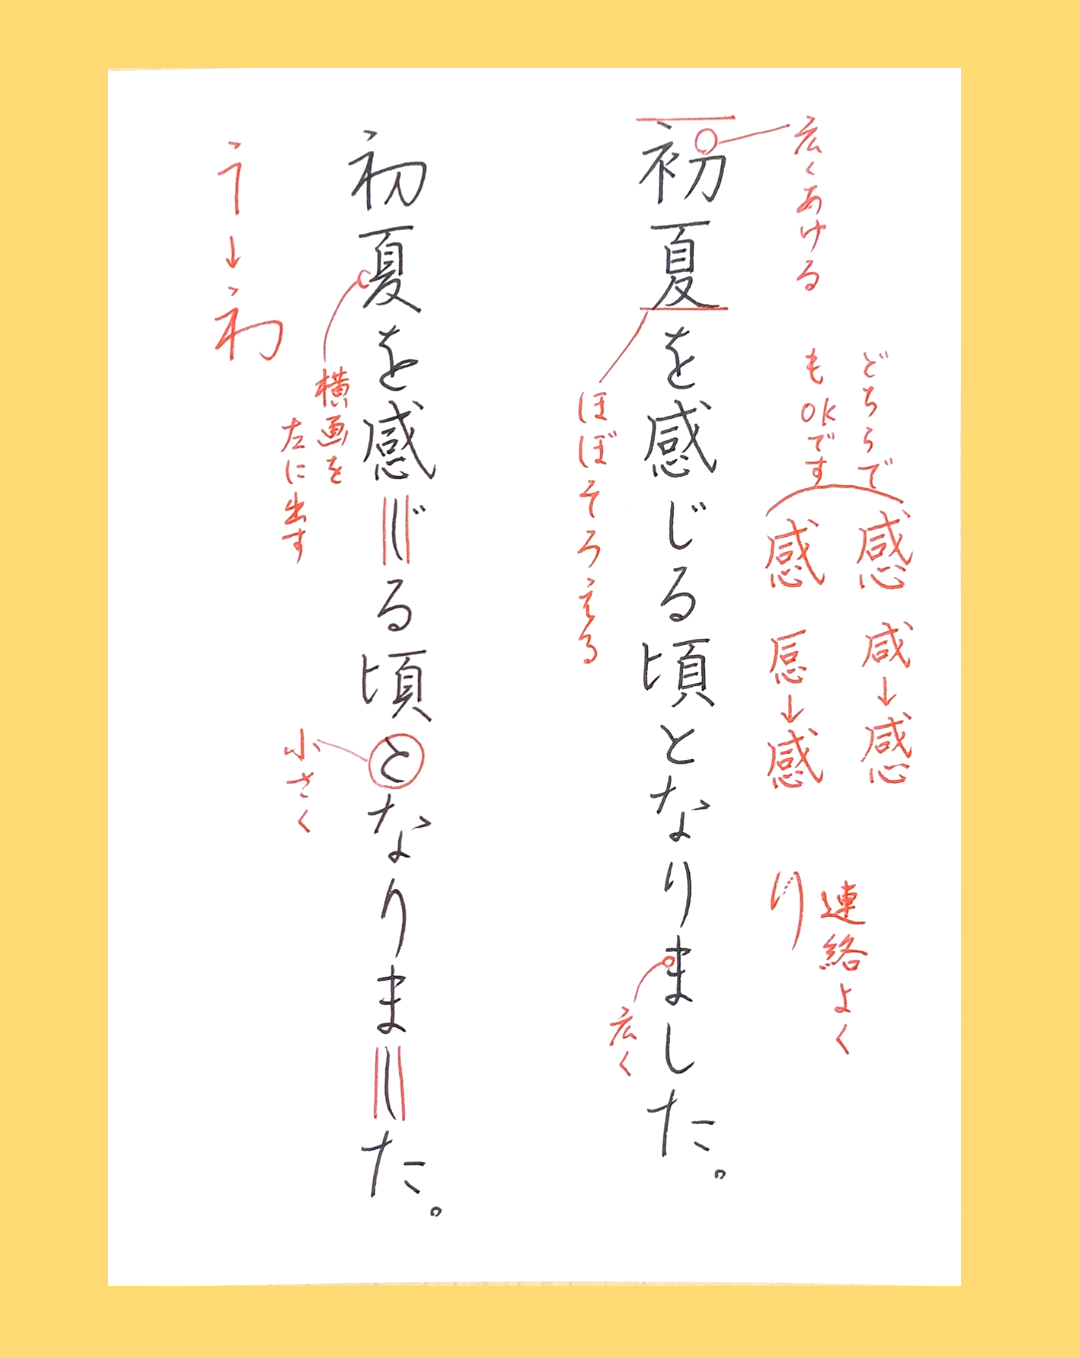 広くあける
どちらで
もOKです
感 咸→感
感 㥯→感
連絡よく
り
初夏を感じる頃となりました。
広く
ほぼそろえる
初夏を感じる頃となりました。
横画を
左に出す
小さく